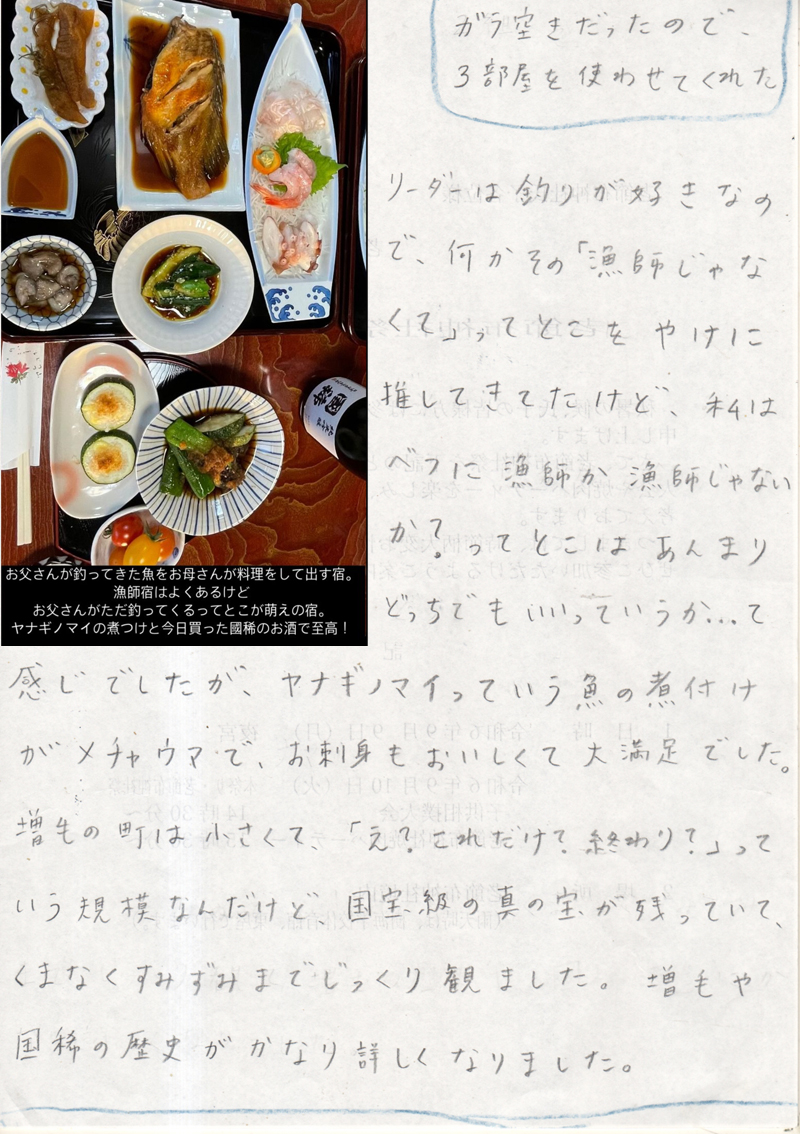 ガラ空きだったので、
3部屋を使わせてくれた
リーダーは釣りが好きなの
で、何かその「漁師じゃな
くて」ってとこをやけに
推してきてたけど、私は
べつに漁師か漁師じゃない
か?ってとこはあんまり
どっちでもいいっていうか…て
感じでしたが、ヤナギノマイっていう魚の煮付け
がメチャウマで、お刺身もおいしくて大満足でした。
増毛の町は小さくて、「え?これだけ?終わり?」って
いう規模なんだけど国宝級の真の宝が残っていて、
くまなくすみずみまでじっくり観ました。増毛や
国稀の歴史がかなり詳しくなりました。
國稀
お父さんが釣ってきた魚をお母さんが料理をして出す宿。
漁師宿はよくあるけど
お父さんがただ釣ってくるってとこが萌えの宿。
ヤナギノマイの煮つけと今日買った國稀のお酒で至高!